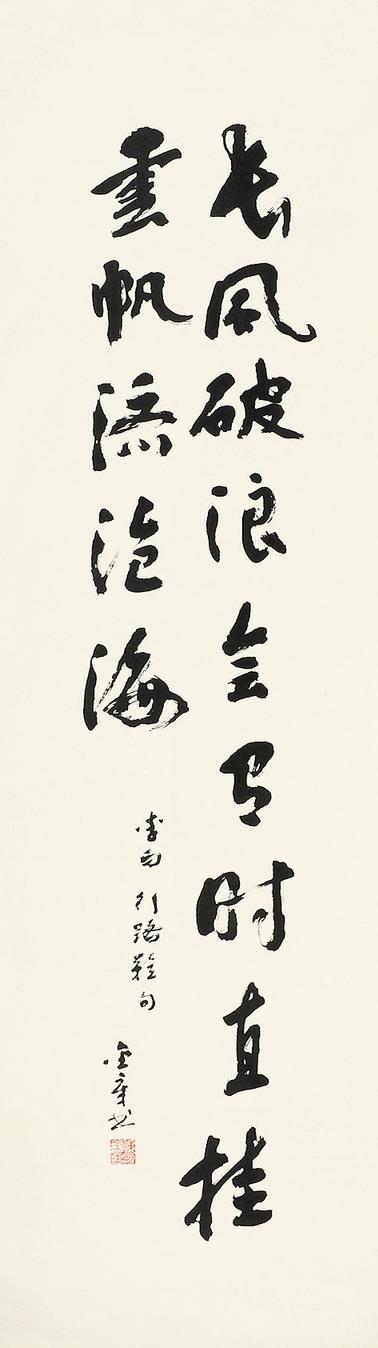 长风破浪会有时直挂
云帆济沧海
李白行路难句
金章书